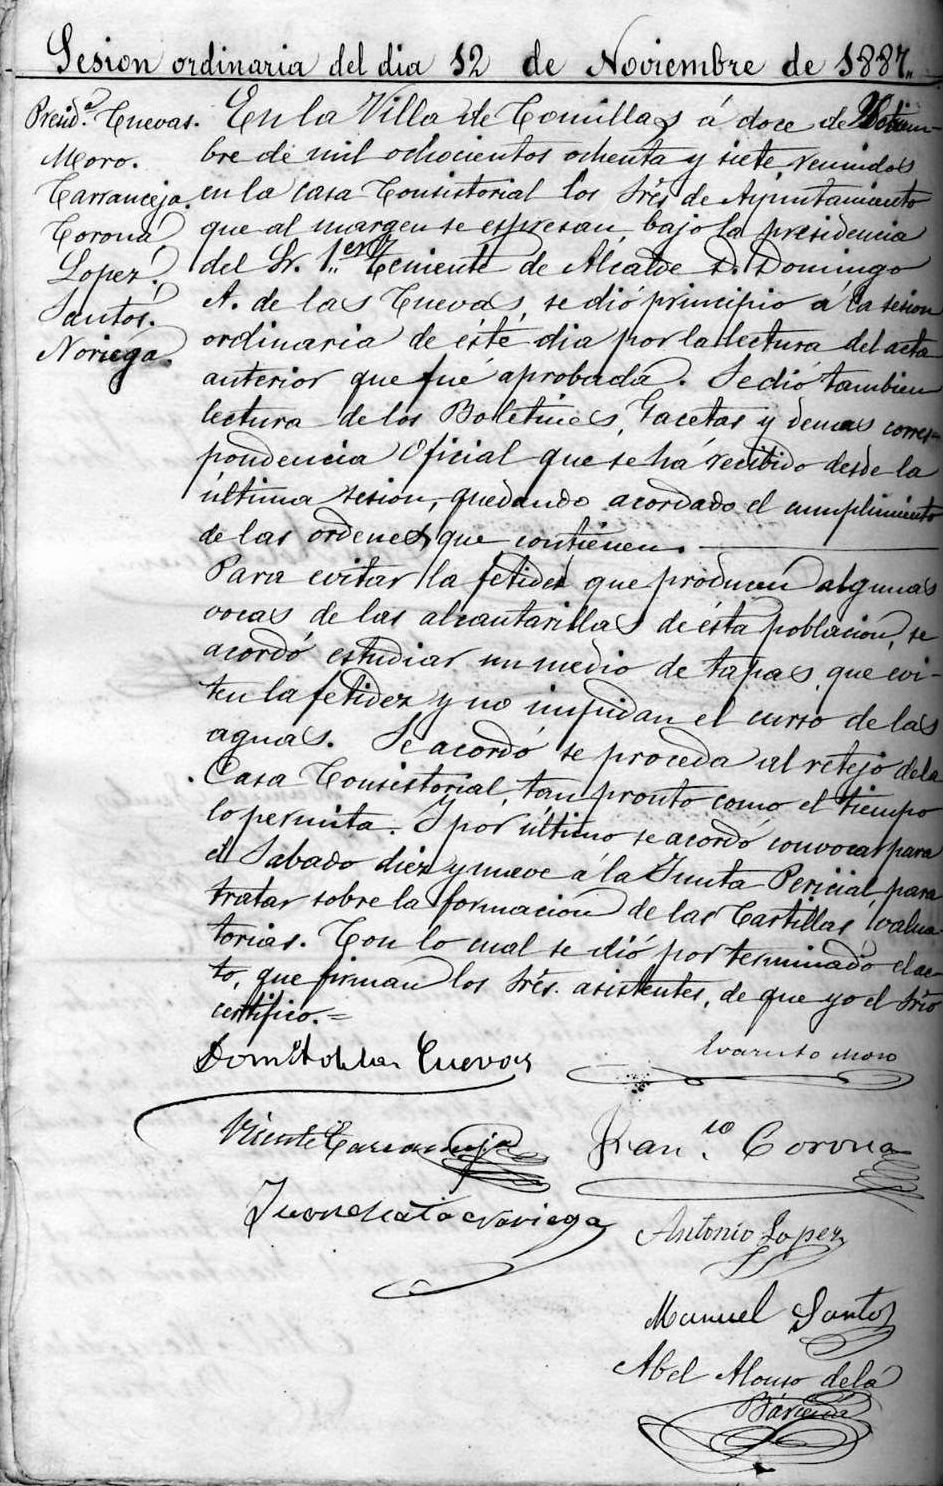 Sesion ordinaria del dia 12 de Noviembre de 1887.
Presid.ª Cuevas.
Moro.
Carranceja.
Corona
Lopez.
Santos.
Noriega.
En la Villa de Comillas á doce de Noviem-
bre de mil ochocientos ochenta y siete, reunidos
en la Casa Consistorial los Sres de Ayuntamiento
que al margen se espresan, bajo la presidencia
del Sr. 1.er Teniente de Alcalde D. Domingo
A. de las Cuevas, se dió principio á la sesion
ordinaria de éste dia por la lectura del acta
anterior que fué aprobada. Se dió tambien
lectura de los Boletines, Gacetas y demas corres-
pondencia Oficial que se há recibido desde la
última sesion, quedando acordado el cumplimiento
de las ordenes que contienen.
Para evitar la fetidez que producen algunas
vocas de las alcantarillas de ésta poblacion, se
acordó estudiar un medio de tapas, que evi-
ten la fetidez y no impidan el curso de las
aguas. Se acordó se proceda al retejo de la
Casa Consistorial, tan pronto como el tiempo
lo permita. Y por último se acordó convocar para
el Sabado diez y nueve á la Junta Pericial para
tratar sobre la formacion de las Cartillas evalua-
torias. Con lo cual se dió por terminado el ac-
to, que firman los Sres. asistentes, de que yo el Srio
certifico.=
Dom.º A de las Cuevas
Evaristo Moro
Vicente Carranceja
Fran.co Corona
Juan Noriega
Antonio Lopez
Manuel Santos
Abel Alonso de la
Bárcena